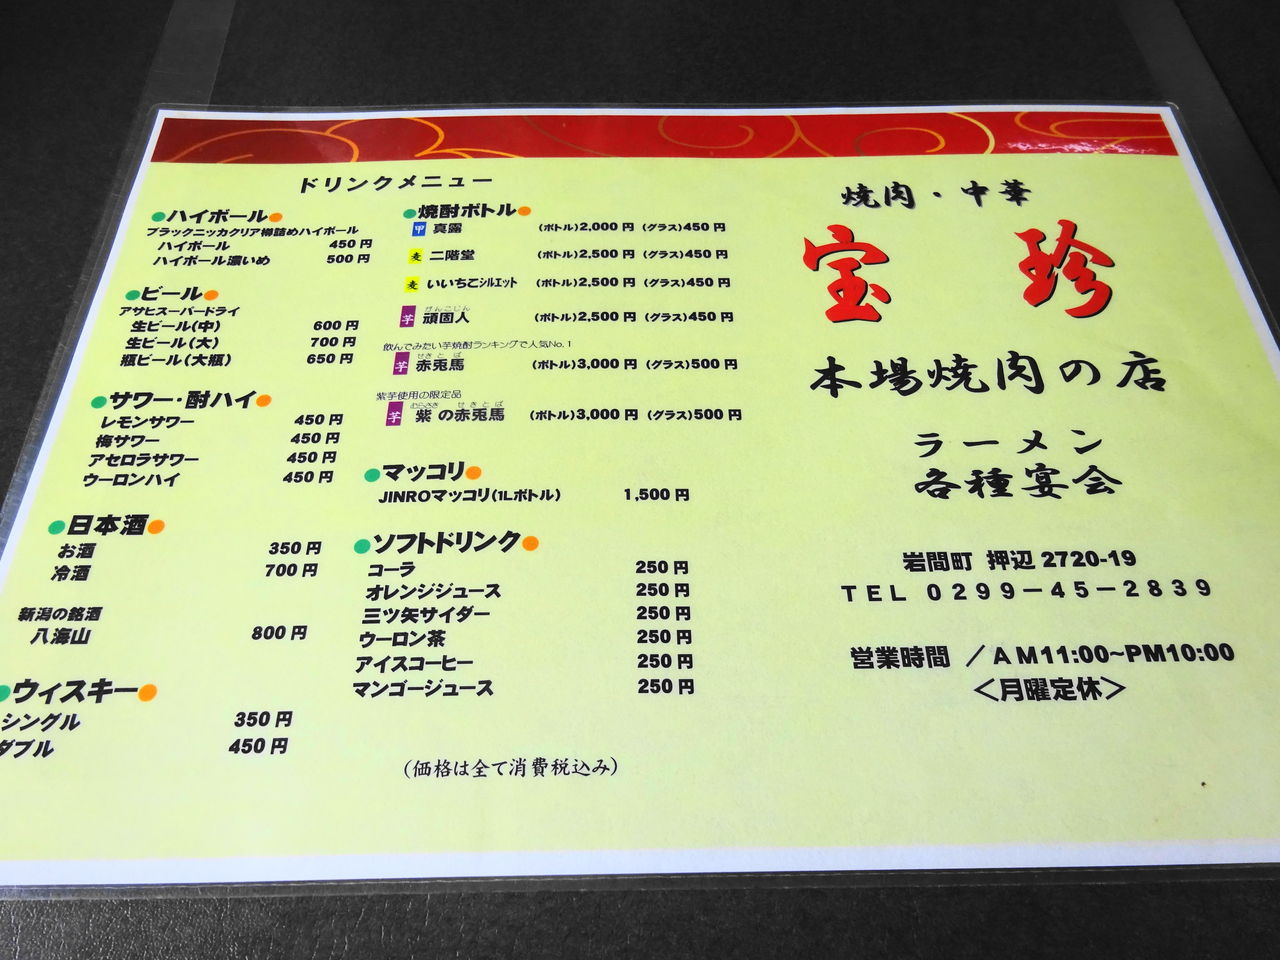 ドリンクメニュー
●ハイボール●
ブラックニッカクリア樽詰めハイボール
ハイボール 450円
ハイボール濃いめ 500円
●ビール●
アサヒスーパードライ
生ビール(中) 600円
生ビール(大) 700円
瓶ビール(大瓶) 650円
●サワー・酎ハイ●
レモンサワー 450円
梅サワー 450円
アセロラサワー 450円
ウーロンハイ 450円
●日本酒●
お酒 350円
冷酒 700円
新潟の銘酒
八海山 800円
●ウィスキー●
シングル 350円
ダブル 450円
●焼酎ボトル●
甲 真露 (ボトル)2,000円 (グラス)450円
麦 二階堂 (ボトル)2,500円 (グラス)450円
麦 いいちこシルエット (ボトル)2,500円 (グラス)450円
がんこじん
芋 頑固人 (ボトル)2,500円 (グラス)450円
飲んでみたい芋焼酎ランキングで人気No.1
せきとば
芋 赤兎馬 (ボトル)3,000円 (グラス)500円
紫芋使用の限定品
むらさき せきとば
芋 紫の赤兎馬 (ボトル)3,000円 (グラス)500円
●マッコリ●
JINROマッコリ(1Lボトル) 1,500円
●ソフトドリンク●
コーラ 250円
オレンジジュース 250円
三ツ矢サイダー 250円
ウーロン茶 250円
アイスコーヒー 250円
マンゴージュース 250円
(価格は全て消費税込み)
焼肉・中華
宝珍
本場焼肉の店
ラーメン
各種宴会
岩間町 押辺2720-19
TEL 0299-45-2839
営業時間 /AM11:00~PM10:00
<月曜定休>